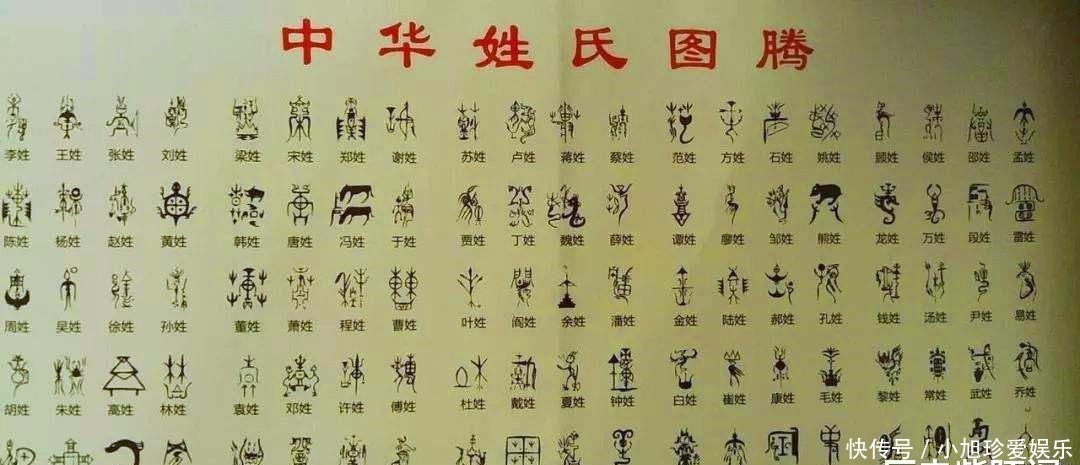 中华姓氏图腾
李姓 王姓 张姓 刘姓 梁姓 宋姓 郑姓 谢姓 苏姓 卢姓 蒋姓 蔡姓 范姓 方姓 石姓 姚姓 顾姓 侯姓 邵姓 孟姓
陈姓 杨姓 赵姓 黄姓 韩姓 唐姓 冯姓 于姓 贾姓 丁姓 魏姓 薛姓 谭姓 廖姓 邹姓 熊姓 龙姓 万姓 段姓 雷姓
周姓 吴姓 徐姓 孙姓 董姓 萧姓 程姓 曹姓 叶姓 阎姓 余姓 潘姓 金姓 陆姓 郝姓 孔姓 钱姓 汤姓 尹姓 易姓
胡姓 朱姓 高姓 林姓 袁姓 邓姓 许姓 傅姓 杜姓 戴姓 夏姓 钟姓 白姓 崔姓 康姓 毛姓 黎姓 常姓 武姓 乔姓
快传号 / 小旭珍爱娱乐